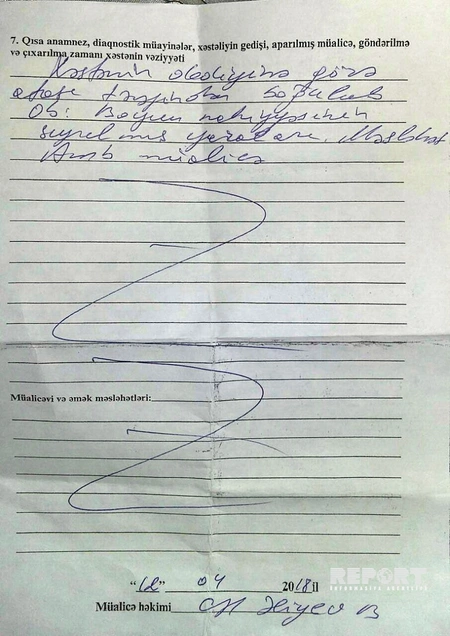 7. Qısa anamnez, diaqnostik müayinələr, xəstəliyin gedişi, aparılmış müalicə, göndərilmə
və çıxarılma zamanı xəstənin vəziyyəti
Xəstənin dediyinə görə
tərəfindən boğulub
Ob: Boyun nahiyyəsinin
sıyrılmış yaraları. Məsləhət
Amb müalicə
Müalicəvi və əmək məsləhətləri:
"12" 04 2018 il
Müalicə həkimi Əliyev B
REPORT
İNFORMASİYA AGENTLİYİ